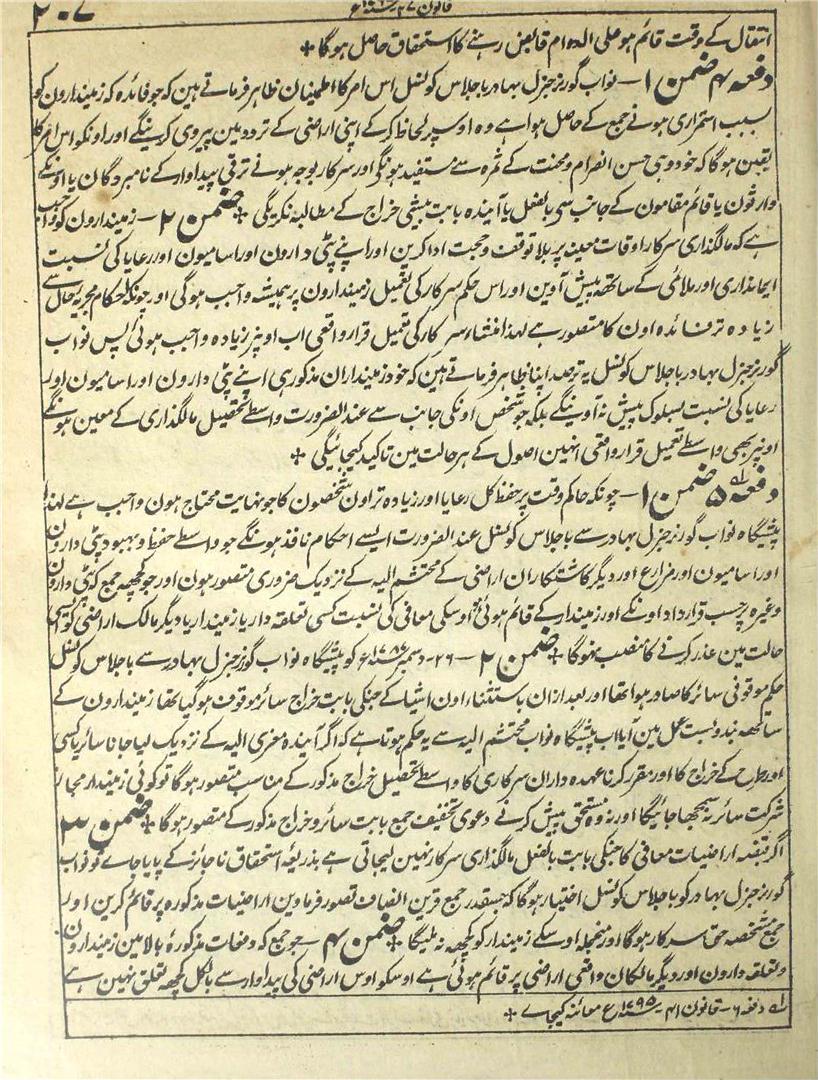 قانون ۲۷ سنہ ء
۲۰۷
انتقال کے وقت قائم ہو علی الدوام قابض رہنے کا استحقاق حاصل ہوگا +
دفعہ ۴ ضمن ۱ — نواب گورنر جنرل بہادر باجلاس کونسل اس امر کا اطمینان ظاہر فرماتے ہین کہ جو فائدہ کہ زمیندارون کو
بسبب استمراری ہونے جمع کے حاصل ہوا ہے وہ اوسپر لحاظ کرکے اپنی اراضی کے تردد مین پیروی کرینگے اور اونکو اس امر کا
یقین ہوگا کہ خود وہی حسن انصرام ومحنت کے ثمرہ سے مستفید ہونگے اور سرکار بوجہ ہونے ترقی پیداوار کے نامبردگان یا اونکے
وارثون یا قائم مقامون کے جانب سے بالفعل یا آیندہ بابت بیشی خراج کے مطالبہ نکریگی + ضمن ۲ — زمیندارون کو واجب
ہے کہ مالگذاری سرکار اوقات معینہ پر بلا توقف وحجت ادا کرین اور اپنے پٹی دارون اور اسامیون اور رعایا کی نسبت
ایمانداری اور ملائمی کے ساتھ پیش آوین اور اس حکم سرکار کی تعمیل زمیندارون پر ہمیشہ واجب ہوگی اور چونکہ احکام مجریہ حال سے
زیادہ تر فائدہ اون کا متصور ہے لہذا منشاء سرکار کی تعمیل قرار واقعی اب اونپر زیادہ واجب ہوئی پس نواب
گورنر جنرل بہادر باجلاس کونسل یہ ترصد اپنا ظاہر فرماتے ہین کہ خود زمینداران مذکور ہی اپنے پٹی دارون اور اسامیون اور
رعایا کی نسبت بسلوک پیش نہ آوینگے بلکہ جو شخص اونکی جانب سے عند الضرورت واسطے تحصیل مالگذاری کے معین ہونگے
اونپر بھی واسطے تعمیل قرار واقعی انہین اصول کے ہر حالت مین تاکید کیجائیگی +
دفعہ ۵ ضمن ۱ — چونکہ حاکم وقت پر حفظ کل رعایا اور زیادہ تر اون شخصون کا جو نہایت محتاج ہون واجب ہے لہذا
پیشگاہ نواب گورنر جنرل بہادر سے باجلاس کونسل عند الضرورت ایسے احکام نافذ ہونگے جو واسطے حفظ و بہبود پٹی دارون
اور اسامیون اور مزارع اور دیگر کاشتکاران اراضی کے محتشم الیہ کے نزدیک ضروری متصور ہون اور جو کچھ جمع کہ پٹی دارون
وغیرہ پر حسب قرارداد اونکے اور زمیندار کے قائم ہوئی ہو اوسکی معافی کی نسبت کسی تعلقہ دار یا زمیندار یا دیگر مالک اراضی کو کسی
حالت مین عذر کرنے کا منصب نہوگا + ضمن ۲ — ۲۶ - دسمبر سنہ ء کو پیشگاہ نواب گورنر جنرل بہادر سے باجلاس کونسل
حکم موقوفی سائر کا صادر ہوا تھا اور بعد ازان باستثناء اون اشیا کے جنکی بابت خراج سائر موقوف ہوگیا تھا زمیندارون کے
ساتھ بندوبست عمل مین آیا اب پیشگاہ نواب محتشم الیہ سے یہ حکم ہوتا ہے کہ اگر آیندہ معزی الیہ کے نزدیک لیا جانا سائر یا کسی
اور طرح کے خراج کا اور مقرر کرنا عہدہ داران سرکاری کا واسطے تحصیل خراج مذکور کے مناسب متصور ہوگا تو کوئی زمیندار مجاز
شرکت سائر نہ سمجھا جائیگا اور نہ وہ مستحق پیش کرنے دعوی تخفیف جمع بابت سائر و خراج مذکور کے متصور ہوگا + ضمن ۳
اگر قبضہ اراضیات معافی کا جنکی بابت بالفعل مالگذاری سرکار نہین لیجاتی ہے بذریعہ استحقاق ناجائز کے پایا جاے تو نواب
گورنر جنرل بہادر کو باجلاس کونسل اختیار ہوگا کہ جسقدر جمع قرین انصاف تصور فرماوین اراضیات مذکورہ پر قائم کرین اور
جمع مشخصہ حق سرکار ہوگا اور منجملہ اوسکے زمیندار کو کچھ نہ ملیگا + ضمن ۴ — جو جمع کہ دفعات مذکورۂ بالا مین زمیندارون
وتعلقہ دارون اور دیگر مالکان واقعی اراضی پر قائم ہوئی ہے اوسکو اوس اراضی کی پیداوار سے بالکل کچھ تعلق نہین ہے
دفعہ ۶ — قانون ۴۱ سنہ ۱۷۹۵ع معائنہ کیجاے +